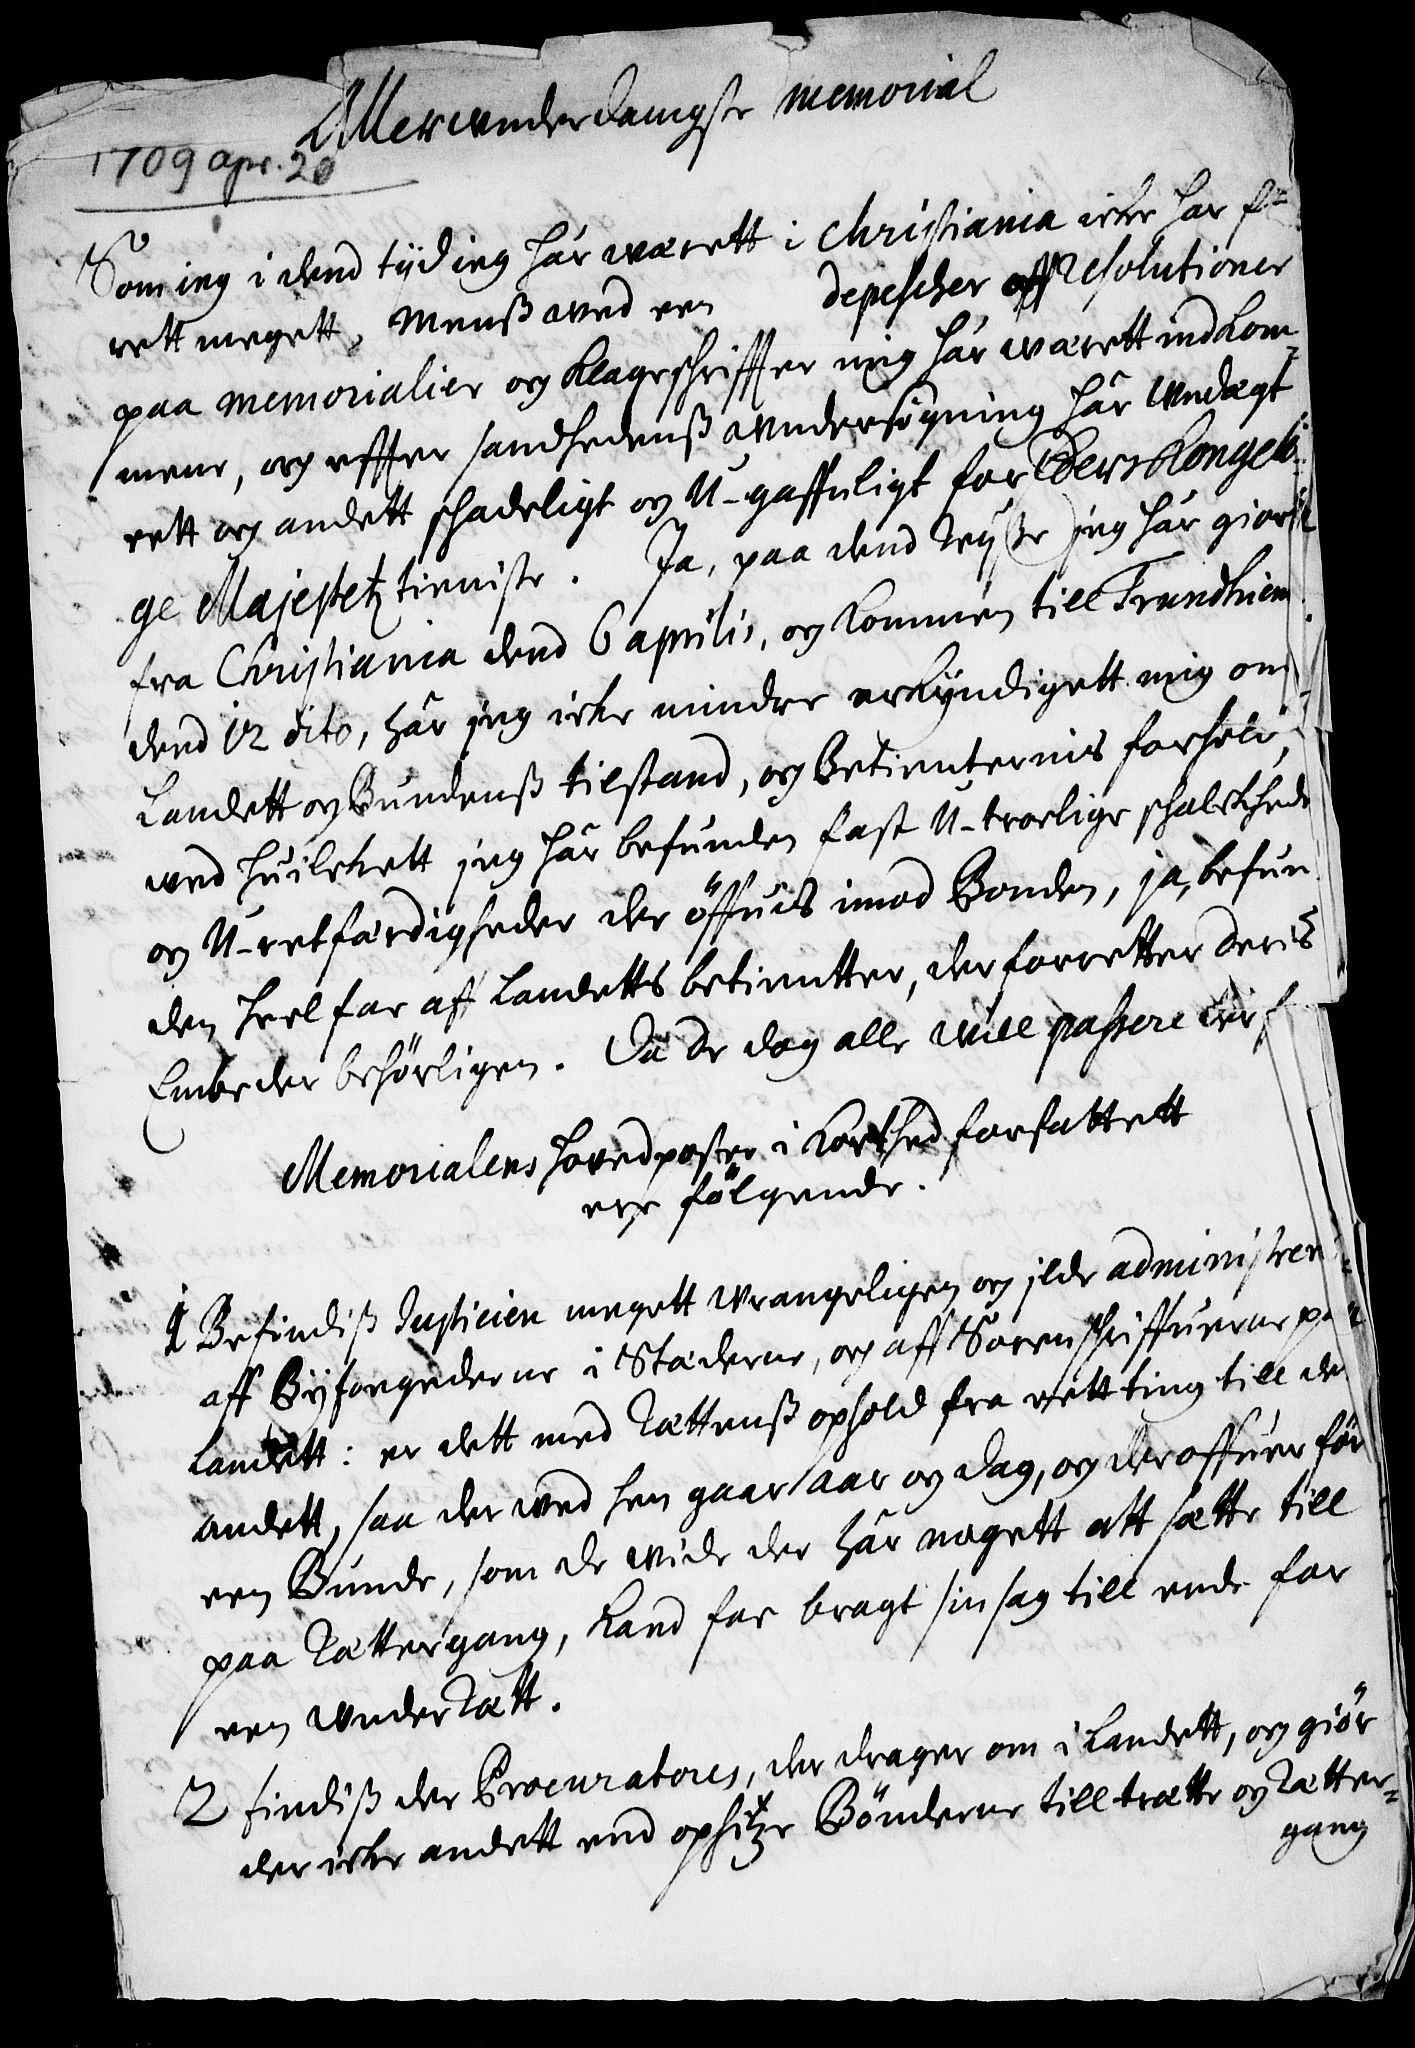 Allerunderdanigste Memorial
1709 apr. 20
Som ieg i dend tijd ieg hår wærett i Christiania icke har er=
rett megett, Menß wed een depescher off Resolutioner
paa memorialier og Klageschriffter mig hår wærett indkom¬
mene, og effter sandhedenß undersögning hår undægt
rett og andett schadeligt og U-gaffnligt for Eders Kongeli¬
ge Majestetz tieniste. Ja, paa dend Reyse jeg hår giort
fra Christiania dend 6 aprilis, og kommen till Trundhiem
dend 12 dito, hår jeg icke mindre erkyndigett mig om
Landett og Bundenß tilstand, og Betienternis forhold,
wed huilckett jeg hår befunden fast U-troelige schalckhede
og U-retfærdigheder der öffuis imod Bonden, ja, befun
den heel faa aff Landetts betientter, der forretter deris
Embeder behörligen. Da de dog alle will passere
Memorialens hovedposter i Korthed forfattett
ere fölgende.
1 Befindiß Justicien megett wrangeligen og ilde administrer¬
aff Byfougederne i Stæderne, og aff Sorenschriffuerne paa
Landett: er dett med Rættenß ophold fra rett ting till de
andett, saa der wed hen gaar aar og dag, og deroffuer för
een Bunde, som de wide der hår nogett att sætte till
paa Rættergang, Kand faa bragt sin sag till ende for
een under Rætt.
2 findiß der Procuratores, der drager om i Landett, og giör
der icke andett end ophitze Bönderne till trætte og Rætter¬
gang